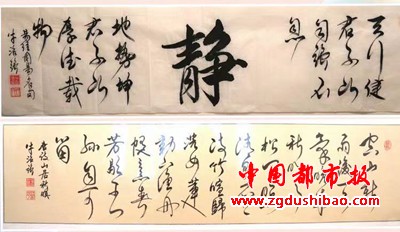 天行健
君子以
自强不
息
静
地势坤
君子以
厚德载
物
空山新
雨後天
氣晚来
秋明月
松間照
清泉石
上流
竹喧歸
浣女蓮
動下漁舟
随意春
芳歇王
孫自可
留
唐诗山居秋暝
中国都市报
www.zgdushibao.com